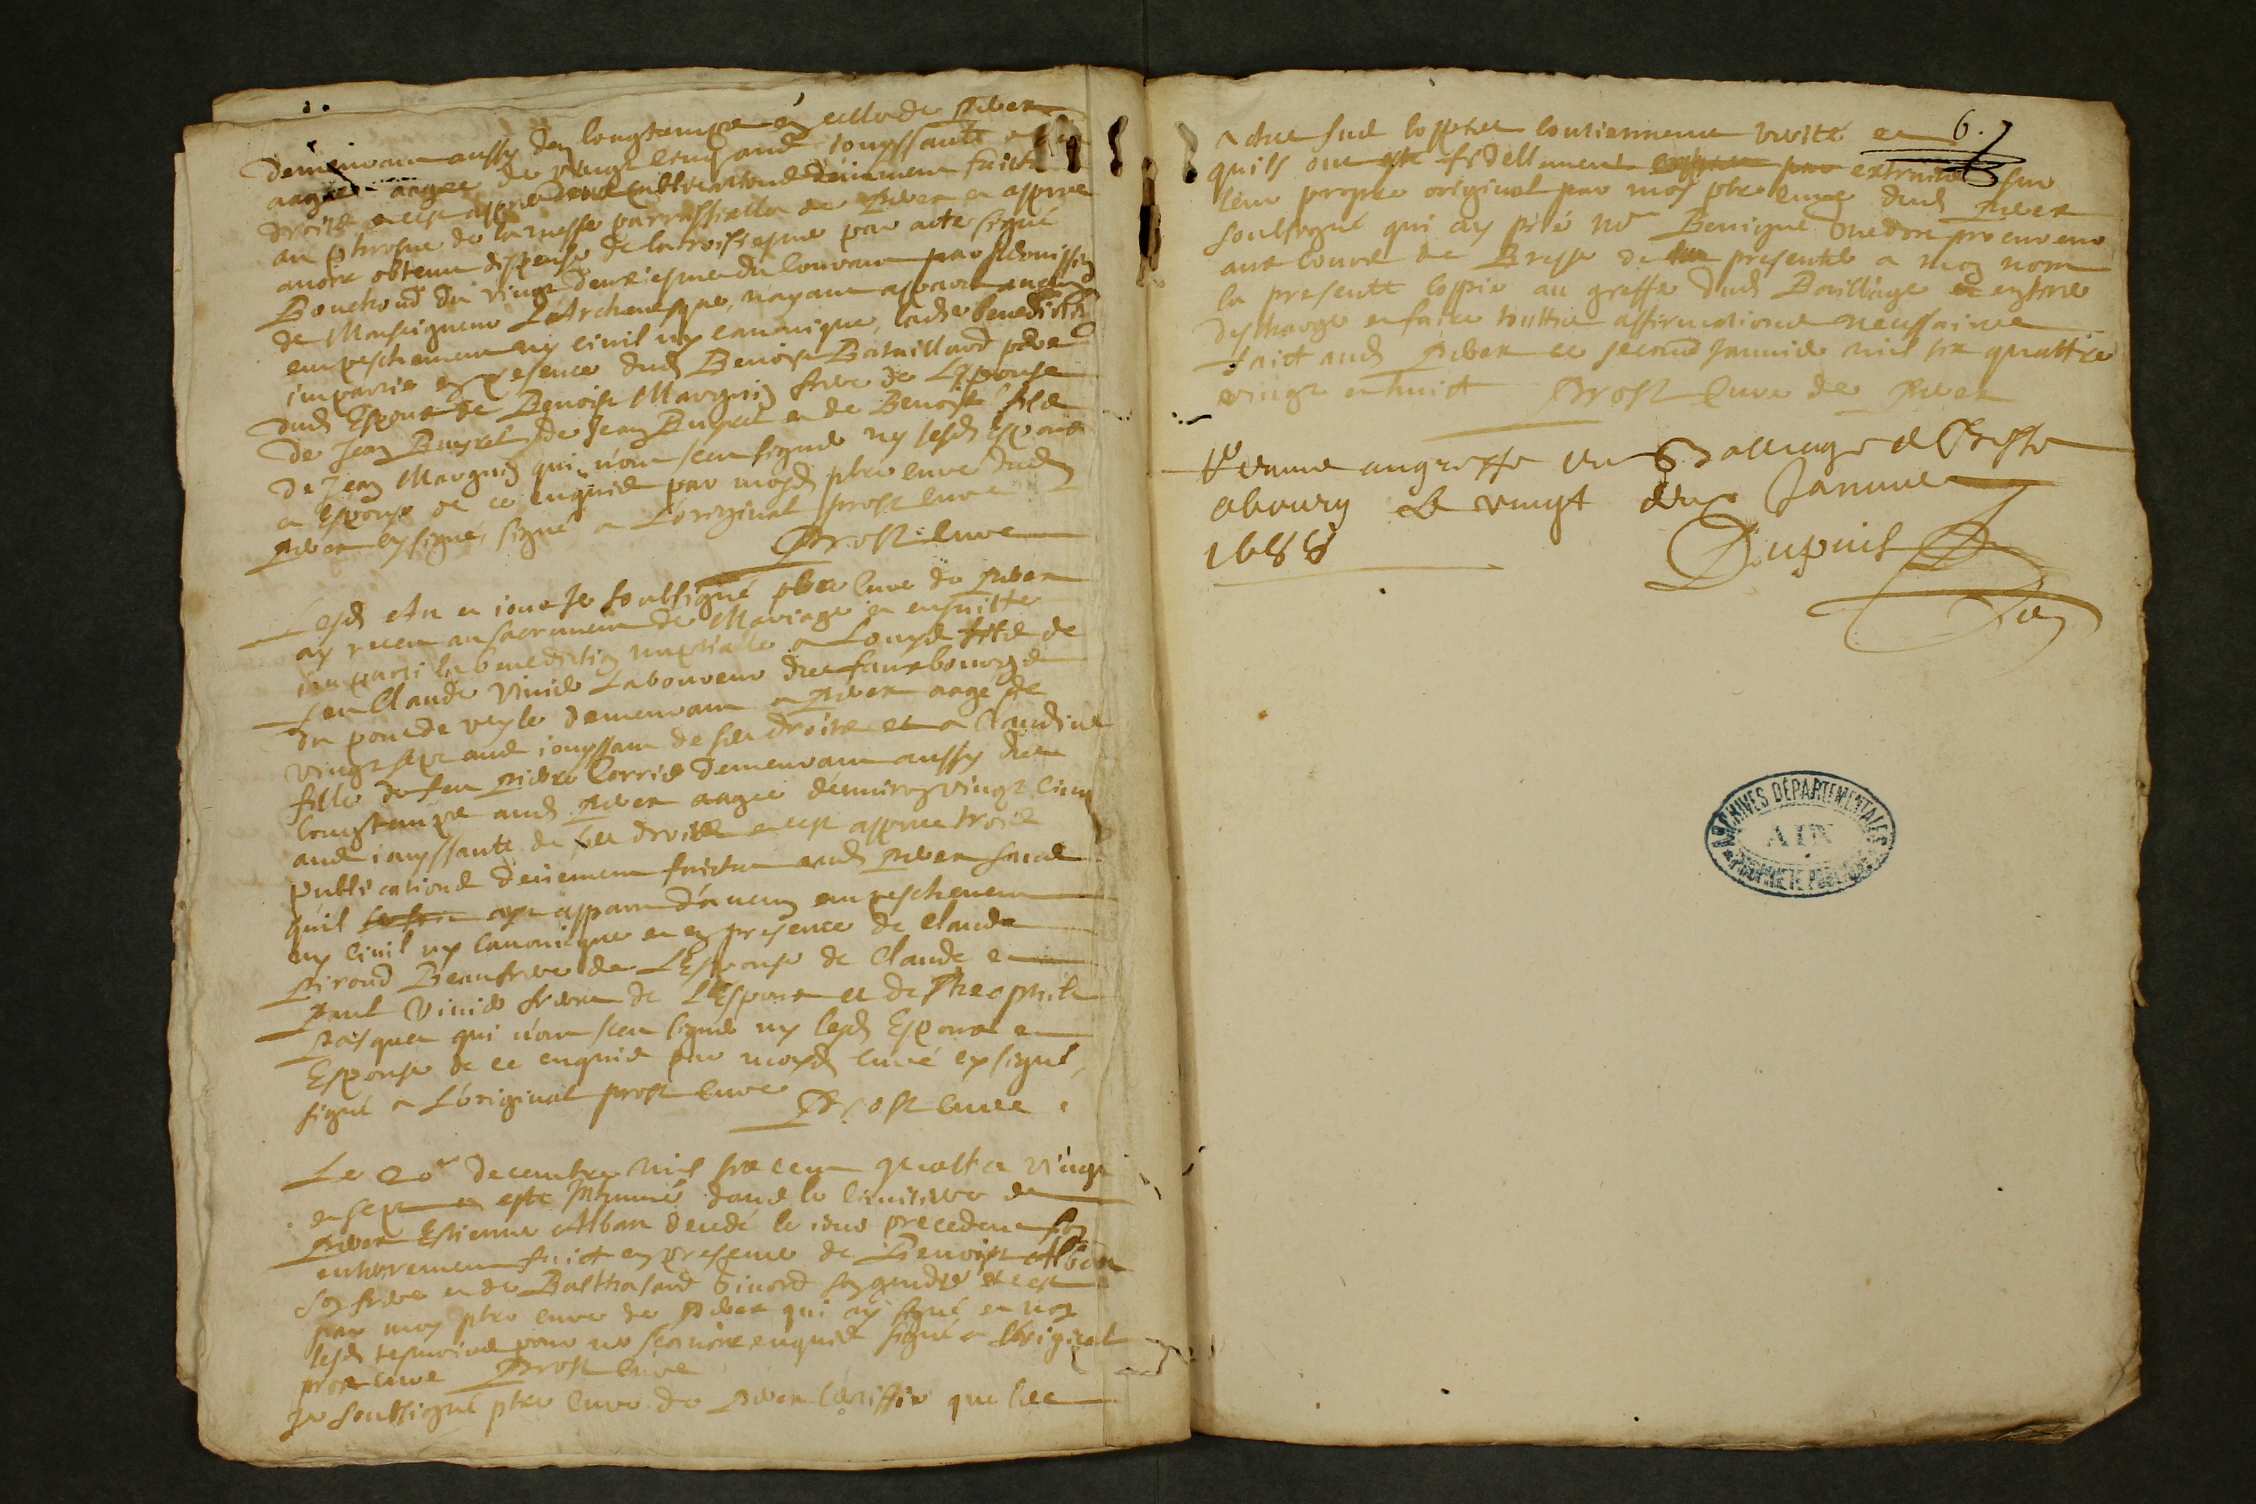 demeurant aussy dez longtemps en celle de Perex
aagée de vingt cinq ans jouyssante
droits et ce apres deux publications deüement faictes
au Phrosne de la messe parrossialle de Perex et apres
avoir obtenu dispense de la troisiesme par acte signé
Bouchond du vingt deuxiesme du courant
de Monseigneur L'Archevesque, n'ayant apparu aucun
empeschement ny civil ny canonique, ladte benediction
impartie en presence dud Benoist Bataillard pere
dud Espoux de Benoist Marguin frere de L'espouse
de Jean Buyret de Jean Buyret et de Benoist fils
de Jean Marguin qui n'ont sceu signer ny lesd Espoux
et Espouse de ce enquis par moyd pbre curé dud
Perex sysigné, signé a L'original prost curé
Prost curé
Lesd An et jour Je soubsigné pbre curé de Perex
ay receu au sacrement de Mariage et ensuitte
imparti la benediction nuptialle a Louys fils de
feu Claude Vinid Laboureur des fauxbourgs
du pont de veyle demeurant a Perex aagé de
vingt sept ans jouyssant de ses droits et a Claudine
fille de feu pierre Corrid demeurant aussy dez
longtemps aud Perex aagee denviron vingt cinq
ans jouyssante de ses droits et ce apres trois
publications deüement faictes aud Perex sans
quil aye apparu d'aucun empeschement
ny civil ny canonique et en presence de Claude
Pirond Beaufrere de L'Espouse de Claude et
Paul Vinid freres de L'Espoux et de Theophile
Pasquet qui n'ont sceu signer ny lesd Espoux et
Espouse de ce enquis par moyd curé sysigné,
signé a L'original prost curé Prost curé
Le 20e decembre mil six cent quattre vingt
et sept a esté Inhumé dans le cimitiere de
Perex Estienne Alban decedé le jour precedent son
enterrement faict en presence de Benoist Alban
son frere et de Balthasard Givord son gendre et ce
par moy pbre curé de Perex qui ay signé et non
lesd tesmoins pour ne scavoir enquis signé a L'original
prost curé Prost curé
Je soubsigné pbre curé de Perex certiffie que les
6.
actes sus coppiez contiennent verité et
quils ont esté fidellement extraicts sur
leur propre original par moy pbre curé dud Perex
soubsigné qui ay prié Mr Benigne procureur
aux cours de Bresse de presenter a mon nom
la presente coppie au greffe dud Bailliage et en faire
descharge et faire touttes affirmations necessaires
Faict aud Perex ce second Janvier mil six quattre
vingt et huict Prost Curé de Perex
au greffe du Balliage de Bresse
a bourg le vingt deux Janvier
1688
Dupuis
ARCHIVES DÉPARTEMENTALES
AIN
PROPRIÉTÉ PUBLIQUE